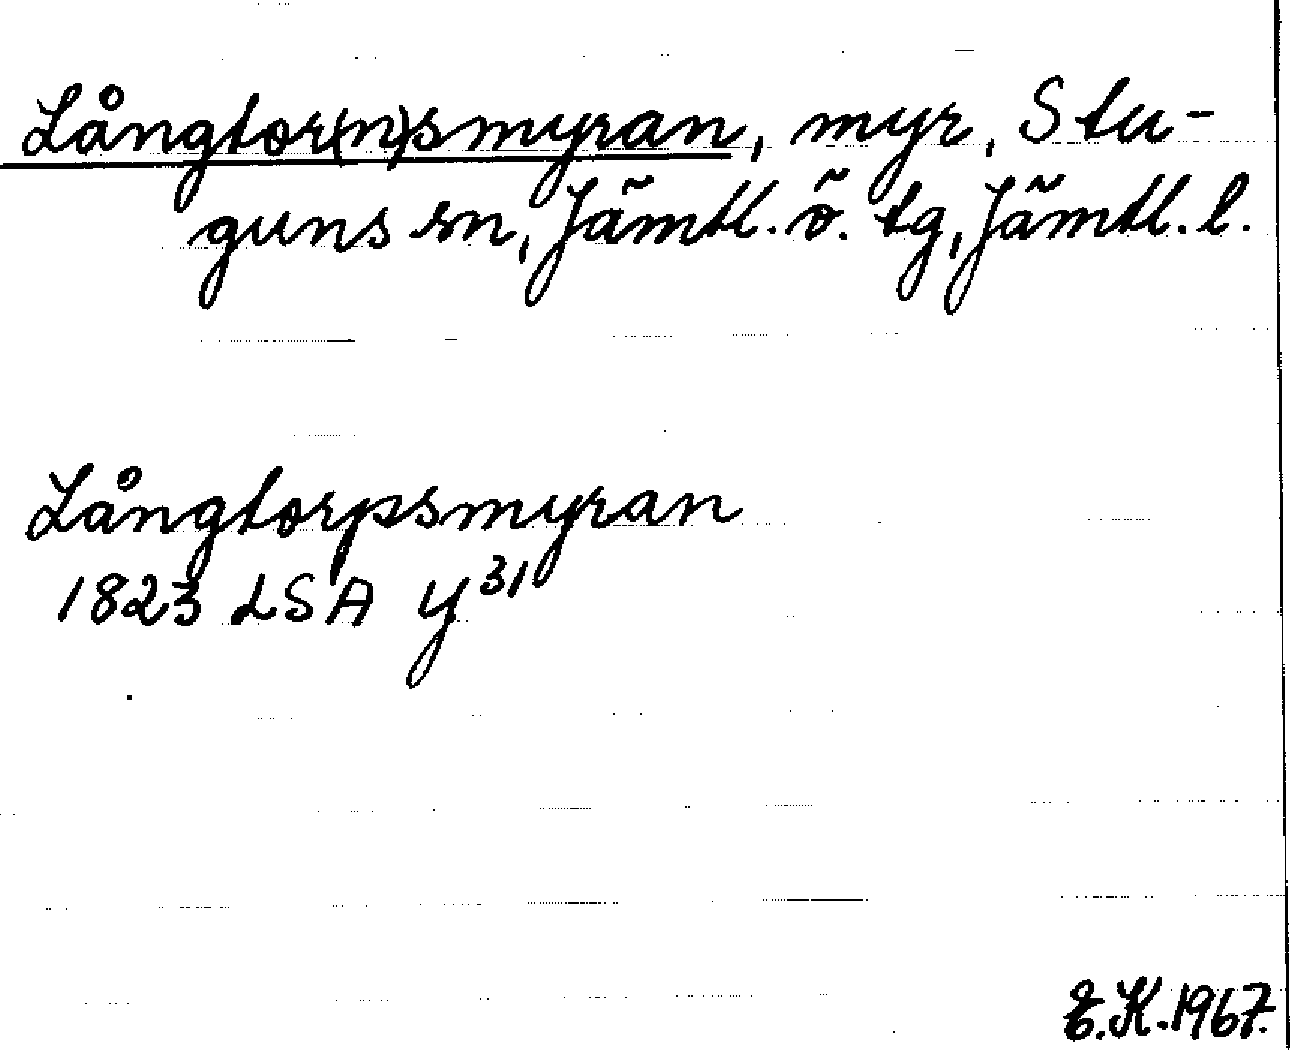 Långtor(n)smyran, myr, Stu-
guns sn, Jämtl. ö. tg, Jämtl. l.
Långtorpsmyran
1823 LSA Y³¹
E.K. 1967.